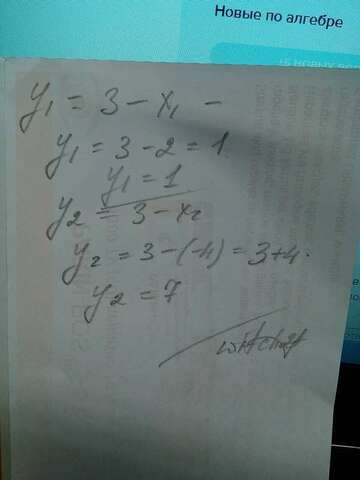 Новые по алгебре
y₁ = 3 - x₁ -
y₁ = 3 - 2 = 1
y₁ = 1
y₂ = 3 - x₂
y₂ = 3 - (-4) = 3 + 4.
y₂ = 7